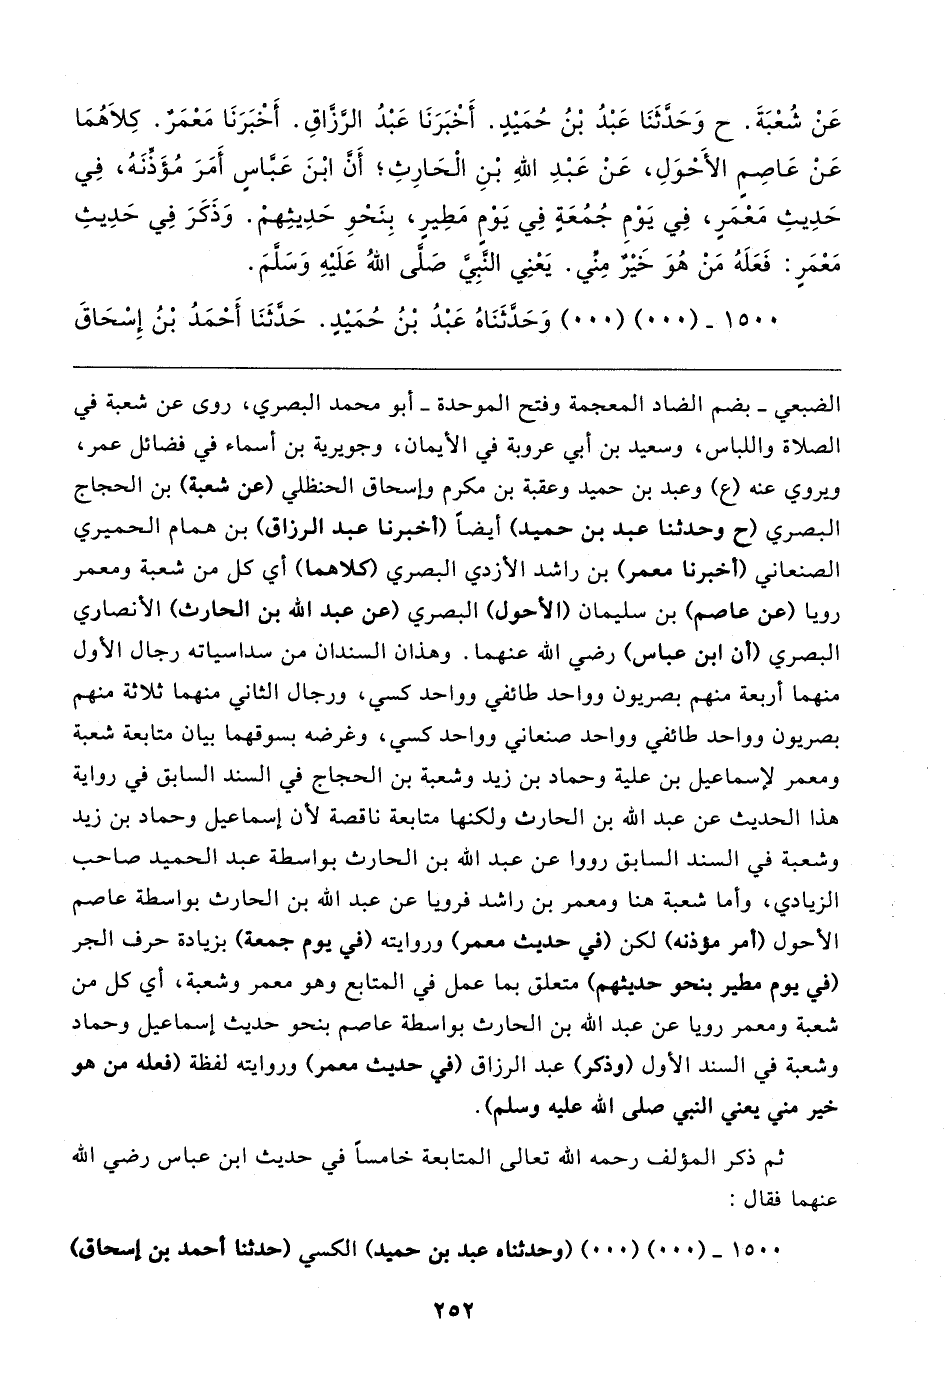 عَنْ شُعْبَةَ. ح وَحَدَّثَنَا عَبْدُ بْنُ حُمَيْدٍ. أَخْبَرَنَا عَبْدُ الرَّزَّاقِ. أَخْبَرَنَا مَعْمَرٌ. كِلاَهُمَا
عَنْ عَاصِمٍ الأَحْوَلِ، عَنْ عَبْدِ اللهِ بْنِ الْحَارِثِ؛ أَنَّ ابْنَ عَبَّاسٍ أَمَرَ مُؤَذِّنَهُ، فِي
حَدِيثِ مَعْمَرٍ، فِي يَوْمِ جُمُعَةٍ فِي يَوْمٍ مَطِيرٍ، بِنَحْوِ حَدِيثِهِمْ. وَذَكَرَ فِي حَدِيثِ
مَعْمَرٍ: فَعَلَهُ مَنْ هُوَ خَيْرٌ مِنِّي. يَعْنِي النَّبِيَّ صَلَّى اللهُ عَلَيْهِ وَسَلَّمَ.
١٥٠٠ ـ (٠٠٠) (٠٠٠) وَحَدَّثَنَاهُ عَبْدُ بْنُ حُمَيْدٍ. حَدَّثَنَا أَحْمَدُ بْنُ إِسْحَاقَ
الضبعي ـ بضم الضاد المعجمة وفتح الموحدة ـ أبو محمد البصري، روى عن شعبة في
الصلاة واللباس، وسعيد بن أبي عروبة في الأيمان، وجويرية بن أسماء في فضائل عمر،
ويروي عنه (ع) وعبد بن حميد وعقبة بن مكرم وإسحاق الحنظلي (عن شعبة) بن الحجاج
البصري (ح وحدثنا عبد بن حميد) أيضاً (أخبرنا عبد الرزاق) بن همام الحميري
الصنعاني (أخبرنا معمر) بن راشد الأزدي البصري (كلاهما) أي كل من شعبة ومعمر
رويا (عن عاصم) بن سليمان (الأحول) البصري (عن عبد الله بن الحارث) الأنصاري
البصري (أن ابن عباس) رضي الله عنهما. وهذان السندان من سداسياته رجال الأول
منهما أربعة منهم بصريون وواحد طائفي وواحد كسي، ورجال الثاني منهما ثلاثة منهم
بصريون وواحد طائفي وواحد صنعاني وواحد كسي، وغرضه بسوقهما بيان متابعة شعبة
ومعمر لإسماعيل بن علية وحماد بن زيد وشعبة بن الحجاج في السند السابق في رواية
هذا الحديث عن عبد الله بن الحارث ولكنها متابعة ناقصة لأن إسماعيل وحماد بن زيد
وشعبة في السند السابق رووا عن عبد الله بن الحارث بواسطة عبد الحميد صاحب
الزيادي، وأما شعبة هنا ومعمر بن راشد فرويا عن عبد الله بن الحارث بواسطة عاصم
الأحول (أمر مؤذنه) لكن (في حديث معمر) وروايته (في يوم جمعة) بزيادة حرف الجر
(في يوم مطير بنحو حديثهم) متعلق بما عمل في المتابع وهو معمر وشعبة، أي كل من
شعبة ومعمر رويا عن عبد الله بن الحارث بواسطة عاصم بنحو حديث إسماعيل وحماد
وشعبة في السند الأول (وذكر) عبد الرزاق (في حديث معمر) وروايته لفظة (فعله من هو
خير مني يعني النبي صلى الله عليه وسلم).
ثم ذكر المؤلف رحمه الله تعالى المتابعة خامساً في حديث ابن عباس رضي الله
عنهما فقال:
١٥٠٠ ـ (٠٠٠) (٠٠٠) (وحدثناه عبد بن حميد) الكسي (حدثنا أحمد بن إسحاق)
٢٥٢